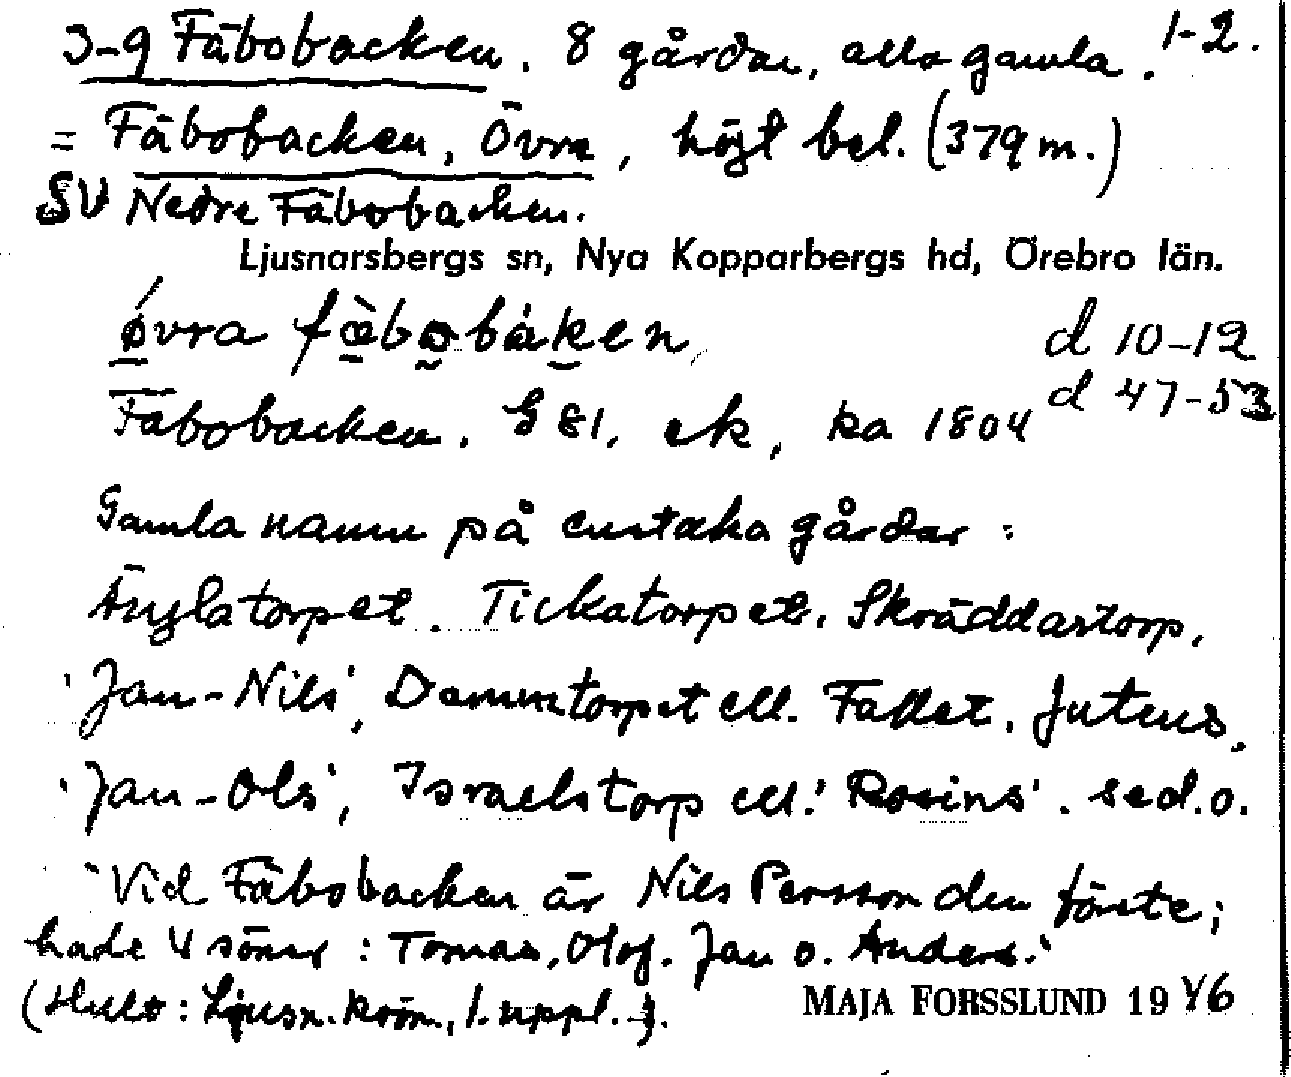 3-9 Fäbobacken. 8 gårdar, alla gamla. 1-2.
= Fäbobacken, Övre, högt bel. (379 m.)
SV Nedre Fäbobacken.
Ljusnarsbergs sn, Nya Kopparbergs hd, Örebro län.
övra fæ̀bobaken d 10-12
d 47-53
Fäbobacken. G 81, ek, ka 1804
Gamla namn på enstaka gårdar:
Änglatorpet. Tickatorpet. Skräddartorp.
'Jan-Nils', Dammtorpet ell. Fallet. Juteus,
'Jan-Ols', Israelstorp ell. 'Rosins'. s.d.o.
"Vid Fäbobacken är Nils Persson den förste;
hade 4 söner: Tomas, Olof. Jan o. Anders."
(Hult: Ljusn. krön., 1. uppl.).
MAJA FORSSLUND 1946